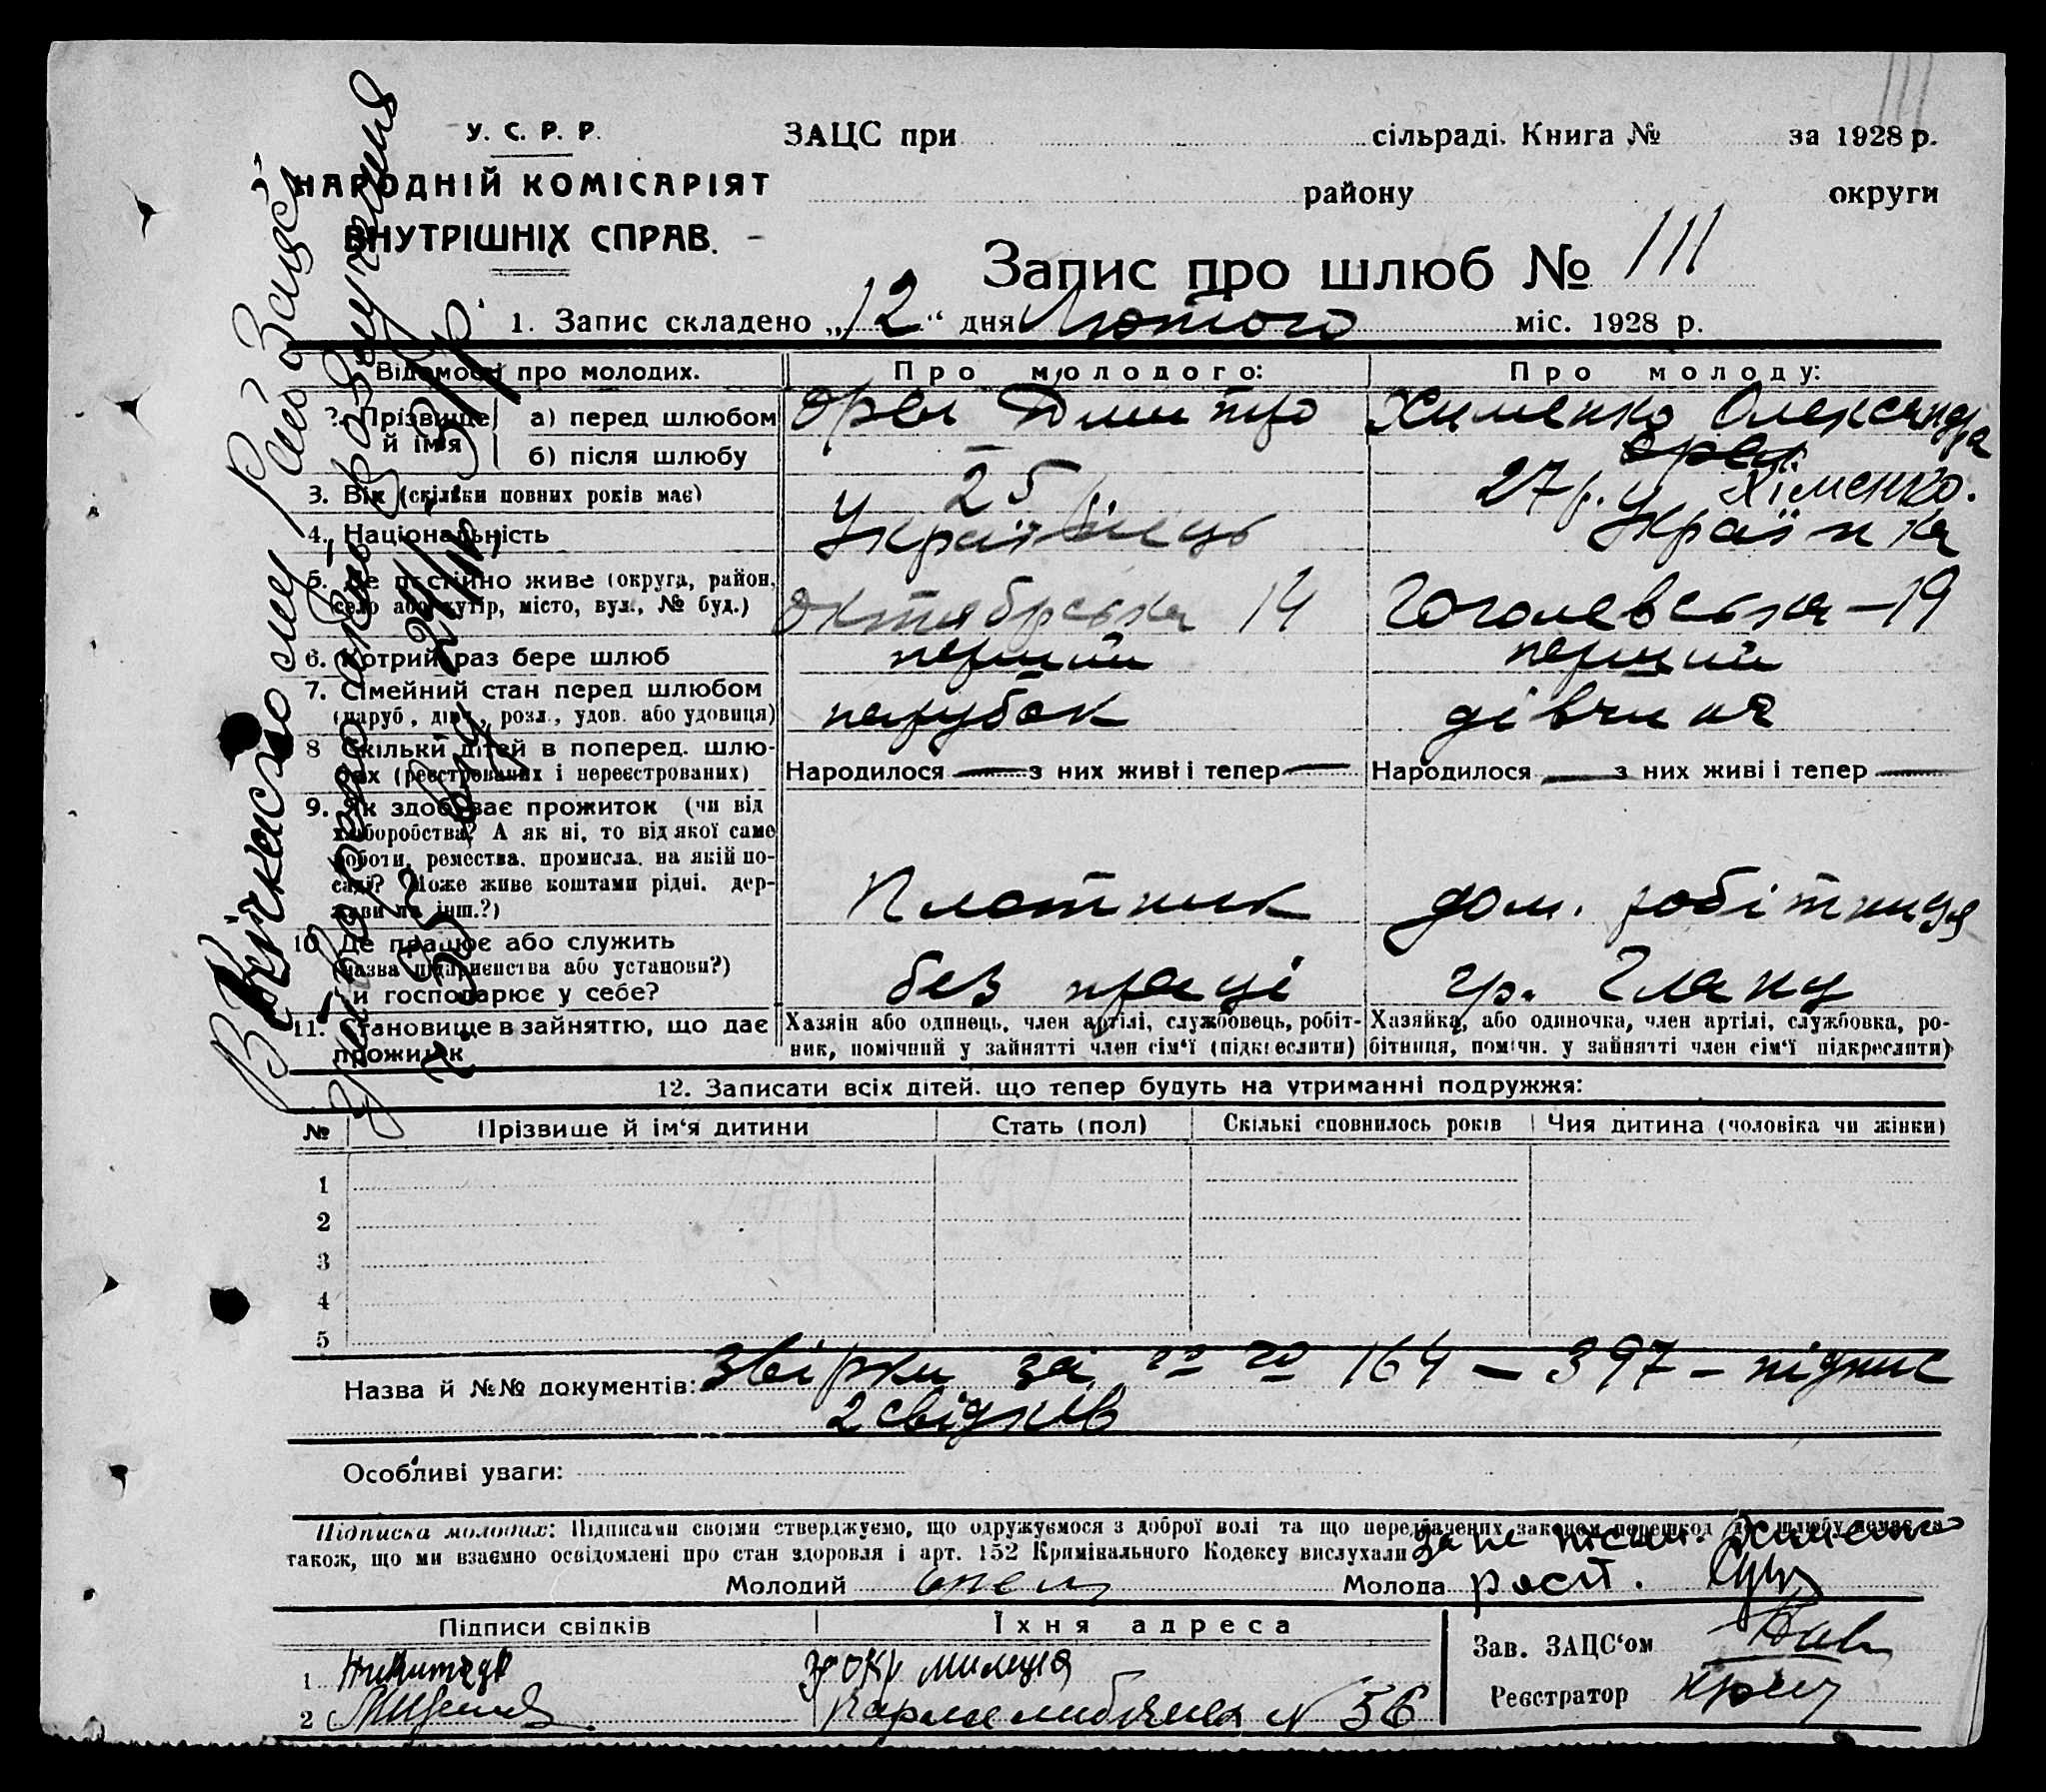 111
У. С. Р. Р.
НАРОДНІЙ КОМІСАРІЯТ
ВНУТРІШНІХ СПРАВ.
ЗАЦС при сільраді. Книга № за 1928 р.
району округи
Запис про шлюб № 111
1. Запис складено „12“ дня Лютого міс. 1928 р.
Відомості про молодих. Про молодого: Про молоду:
2. Прізвище й імя а) перед шлюбом Орел Дмитро Хименко Олександра
б) після шлюбу — Орел Хіменко.
3. Вік (скільки повних років має) 25 р. 27 р.
4. Національність Українець Українка
5. Де постійно живе (округа, район, село або хутір, місто, вул., № буд.) Октябрська 14 Гоголевська — 19
6. Котрий раз бере шлюб перший перший
7. Сімейний стан перед шлюбом (паруб., дівч., розл., удов. або удовиця) парубок дівчина
8 Скільки дітей в поперед. шлюбах (реєстрованих і нереєстрованих) Народилося — з них живі і тепер — Народилося — з них живі і тепер —
9. Як здобуває прожиток (чи від хліборобства? А як ні, то від якої саме роботи, ремества, промисла, на якій посаді? Може живе коштами рідні, держави та інш.?) Плотник дом. робітниця
10 Де працює або служить (назва підприємства або установи?) Чи господарює у себе? без праці гр. Гланц
11. Становище в зайняттю, що дає прожиток Хазяін або одинець, член артілі, службовець, робітник, помічний у зайнятті член сім'ї (підкреслити) Хазяйка, або одиночка, член артілі, службовка, робітниця, помічн. у зайнятті член сім'ї підкреслити)
12. Записати всіх дітей, що тепер будуть на утриманні подружжя:
№ Прізвище й ім'я дитини Стать (пол) Скількі сповнилось років Чия дитина (чоловіка чи жінки)
1
2
3
4
5
Назва й №№ документів: звірки за 164 — 397 — підпис
2 свідків
Особливі уваги:
Підписка молодих: Підписами своїми стверджуємо, що одружуємося з доброї волі та що передбачених законом перешкод до шлюбу немає, а
також, що ми взаємно освідомлені про стан здоровля і арт. 152 Кримінального Кодексу вислухали за не письм. Хименко
Молодий Орел Молода росп.
Підписи свідків Їхня адреса
1 окр милиция
2 № 56
Зав. ЗАЦС'ом
Реєстратор